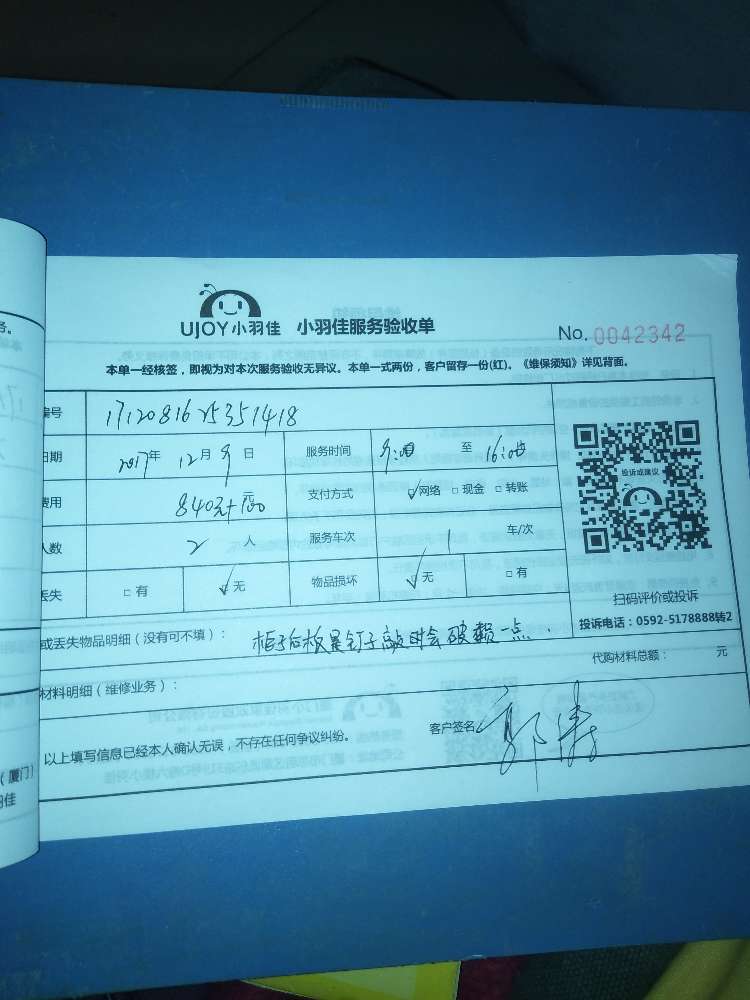 务。
UJOY小羽佳 小羽佳服务验收单
No. 0042342
本单一经核签，即视为对本次服务验收无异议。本单一式两份，客户留存一份(红)。《维保须知》详见背面。
编号 1712081625351418
日期 2017年 12月 9日 服务时间 9:00 至 16:00
费用 840元+100 元 支付方式 ☑网络 □现金 □转账
人数 2 人 服务车次 1 车/次
丢失 □有 ☑无 物品损坏 ☑无 □有
投诉或建议
扫码评价或投诉
投诉电话：0592-5178888转2
或丢失物品明细（没有可不填）： 柜子后板是钉子敲时会破一点.
材料明细（维修业务）： 代购材料总额： 元
以上填写信息已经本人确认无误，不存在任何争议纠纷。 客户签名
（厦门）
羽佳